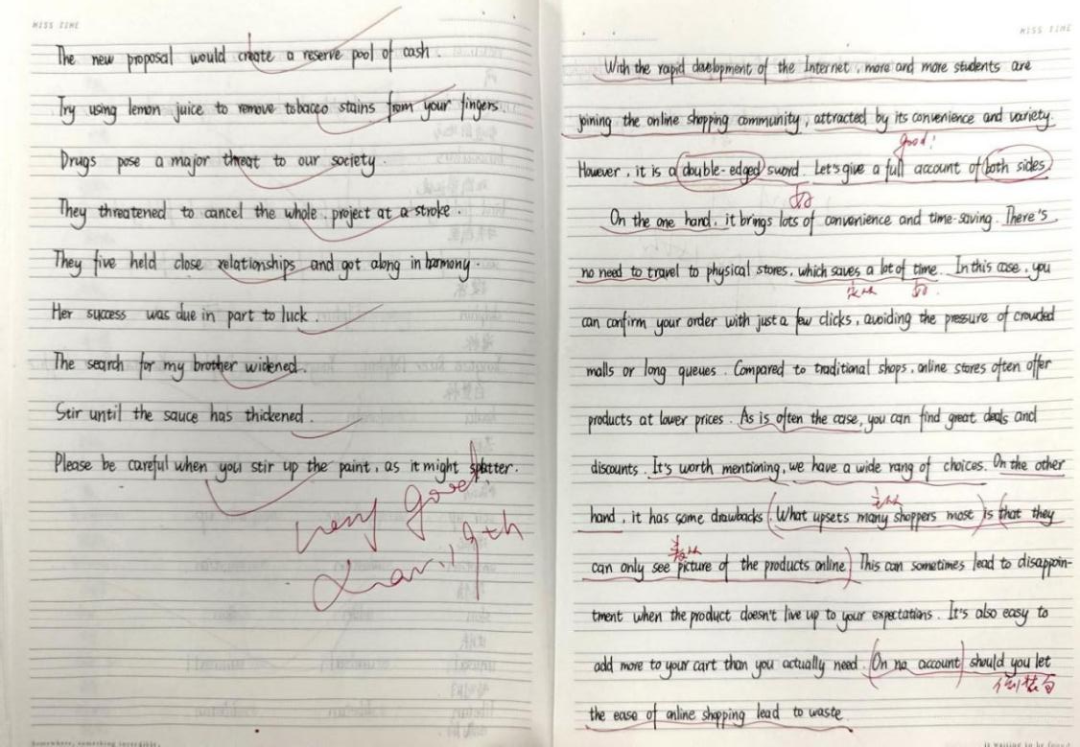 MISS TIME
The new proposal would create a reserve pool of cash.
Try using lemon juice to remove tobacco stains from your fingers
Drugs pose a major threat to our society.
They threatened to cancel the whole project at a stroke.
They five held close relationships and got along in harmony.
Her success was due in part to luck.
The search for my brother widened.
Stir until the sauce has thickened.
Please be careful when you stir up the paint, as it might splatter.
very good!
19th
MISS TIME
With the rapid development of the Internet, more and more students are
joining the online shopping community, attracted by its convenience and variety.
good!
However, it is a double-edged sword. Let's give a full account of both sides.
On the one hand, it brings lots of convenience and time-saving. There's
no need to travel to physical stores, which saves a lot of time. In this case, you
can confirm your order with just a few clicks, avoiding the pressure of crowded
malls or long queues. Compared to traditional shops, online stores often offer
products at lower prices. As is often the case, you can find great deals and
discounts. It's worth mentioning, we have a wide rang of choices. On the other
主从
hand, it has some drawbacks. (What upsets many shoppers most) is (that they
表从
can only see picture of the products online) This can sometimes lead to disappoin-
tment when the product doesn't live up to your expectations. It's also easy to
add more to your cart than you actually need. (On no account) should you let
倒装句
the ease of online shopping lead to waste.